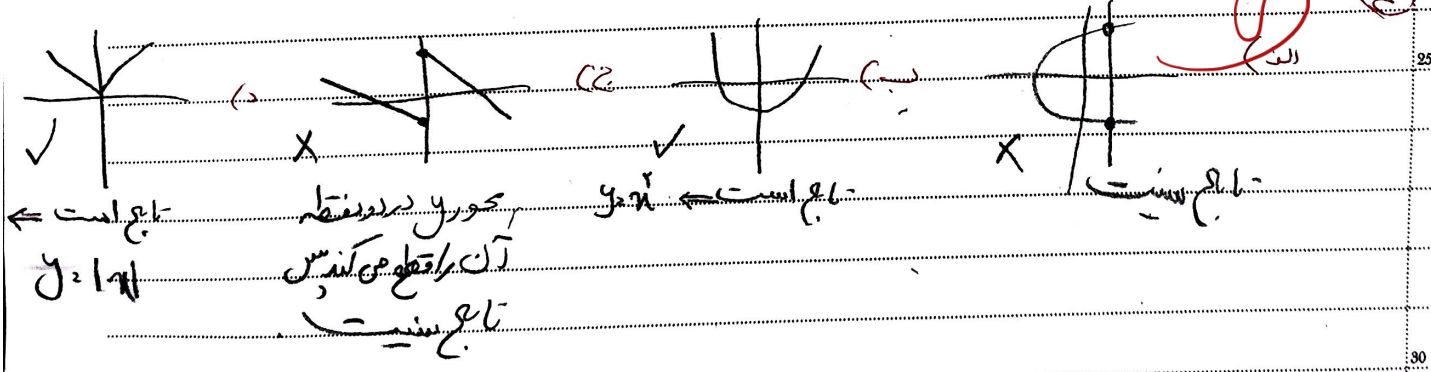 الف) ب) ج) د)
تابع نیست
تابع است ⇐ y=x²
محور y در دو نقطه
آن را قطع می‌کند پس
تابع نیست
تابع است ⇐
y=|x|
25
30